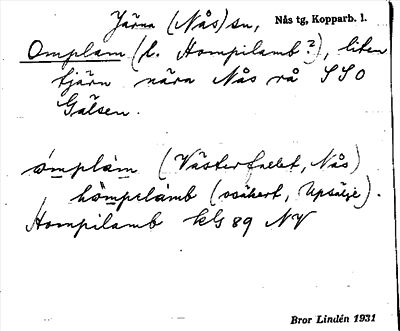 Järna (Nås) sn, Nås tg, Kopparb. l.
Omplam (l. Hompilamb?), liten
tjärn nära Nås rå SSO
Gålsen.
ómplàm (Västerfallet, Nås)
hómpilámb (osäkert, Uppsälje).
Hompilamb kls 89 NV
Bror Lindén 1931